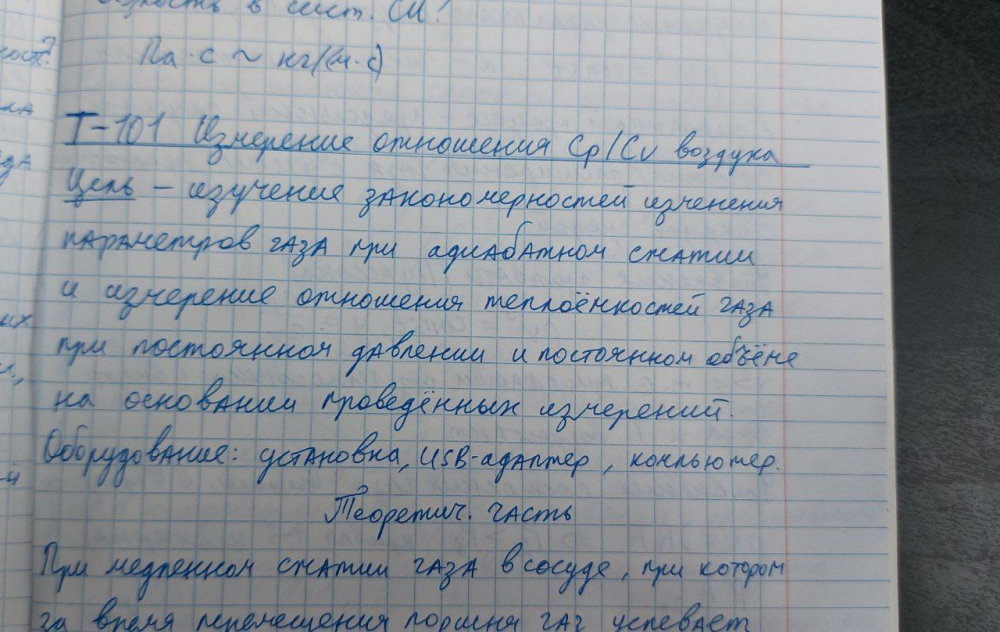 в сист. СИ!
Па·с ~ кг/(м·с)
T-101 Измерение отношения Cp/Cv воздуха
Цель – изучение закономерностей изменения
параметров газа при адиабатном сжатии
и измерение отношения теплоёмкостей газа
при постоянном давлении и постоянном объёме
на основании проведённых измерений.
Оборудование: установка, USB-адаптер, компьютер.
Теоретич. часть
При медленном сжатии газа в сосуде, при котором
за время перемещения поршня газ успевает